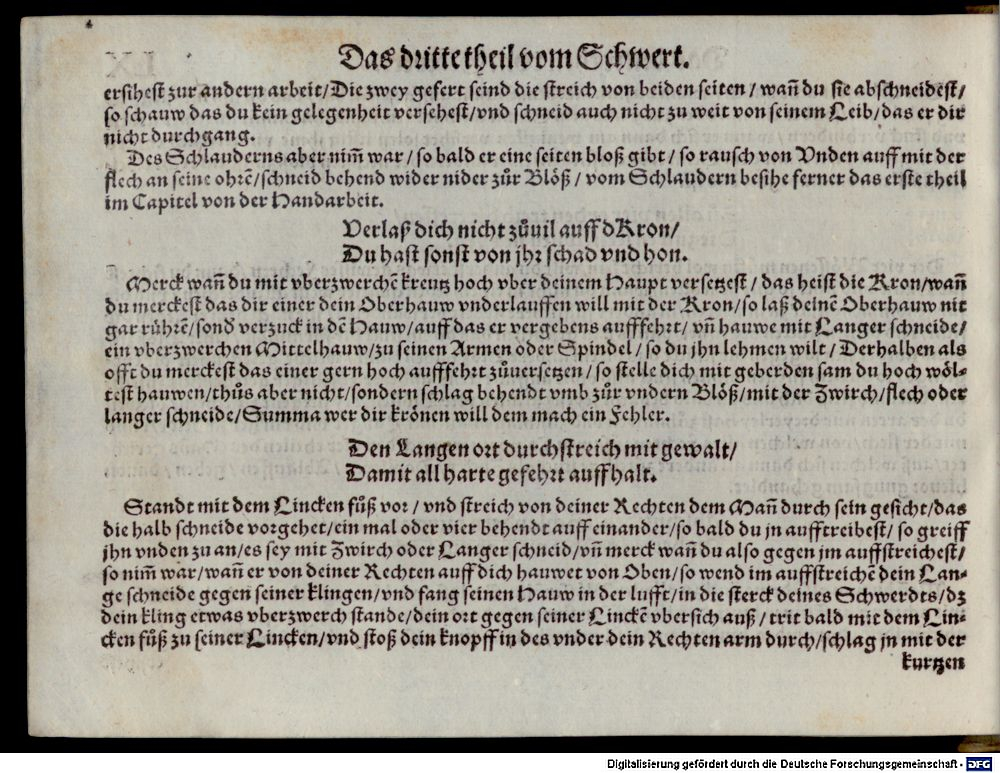 Das dritte theil vom Schwert.
ersihest zur andern arbeit/Die zwey gefert seind die streich von beiden seiten / wañ du sie abschneidest/
so schauw das du kein gelegenheit versehest/vnd schneid auch nicht zu weit von seinem Leib/das er dir
nicht durchgang.
Des Schlauderns aber nim̃ war / so bald er eine seiten bloß gibt / so rausch von Vnden auff mit der
flech an seine ohrẽ/schneid behend wider nider zůr Blöß / vom Schlaudern besihe ferner das erste theil
im Capitel von der Handarbeit.
Verlaß dich nicht zůvil auff dKron/
Du hast sonst von jhr schad vnd hon.
Merck wañ du mit vberzwerchẽ kreutz hoch vber deinem Haupt versetzest / das heist die Kron/wañ
du merckest das dir einer dein Oberhauw vnderlauffen will mit der Kron/so laß deinẽ Oberhauw nit
gar růhrẽ/sond verzuck in dẽ Hauw/auff das er vergebens aufffehrt/ vñ hauwe mit Langer schneide/
ein vberzwerchen Mittelhauw/zu seinen Armen oder Spindel / so du jhn lehmen wilt / Derhalben als
offt du merckest das einer gern hoch aufffehrt zůuersetzen / so stelle dich mit geberden sam du hoch wöl-
test hauwen/thůs aber nicht/sondern schlag behendt vmb zůr vndern Blöß/mit der Zwirch/flech oder
langer schneide/Summa wer dir krönen will dem mach ein Fehler.
Den Langen ort durchstreich mit gewalt/
Damit all harte gefehrt auffhalt.
Standt mit dem Lincken fůß vor / vnd streich von deiner Rechten dem Mañ durch sein gesicht/das
die halb schneide vorgehet/ein mal oder vier behendt auff einander/so bald du jn aufftreibest/ so greiff
jhn vnden zu an/es sey mit Zwirch oder Langer schneid/vñ merck wañ du also gegen jm auffstreichest/
so nim̃ war/wañ er von deiner Rechten auff dich hauwet von Oben/so wend im auffstreichẽ dein Lan-
ge schneide gegen seiner klingen/vnd fang seinen Hauw in der lufft/in die sterck deines Schwerdts/dz
dein kling etwas vberzwerch stande/dein ort gegen seiner Linckẽ vbersich auß / trit bald mit dem Lin-
cken fůß zu seiner Lincken/vnd stoß dein knopff in des vnder dein Rechten arm durch/schlag jn mit der
kurtzen
Digitalisierung gefördert durch die Deutsche Forschungsgemeinschaft - DFG